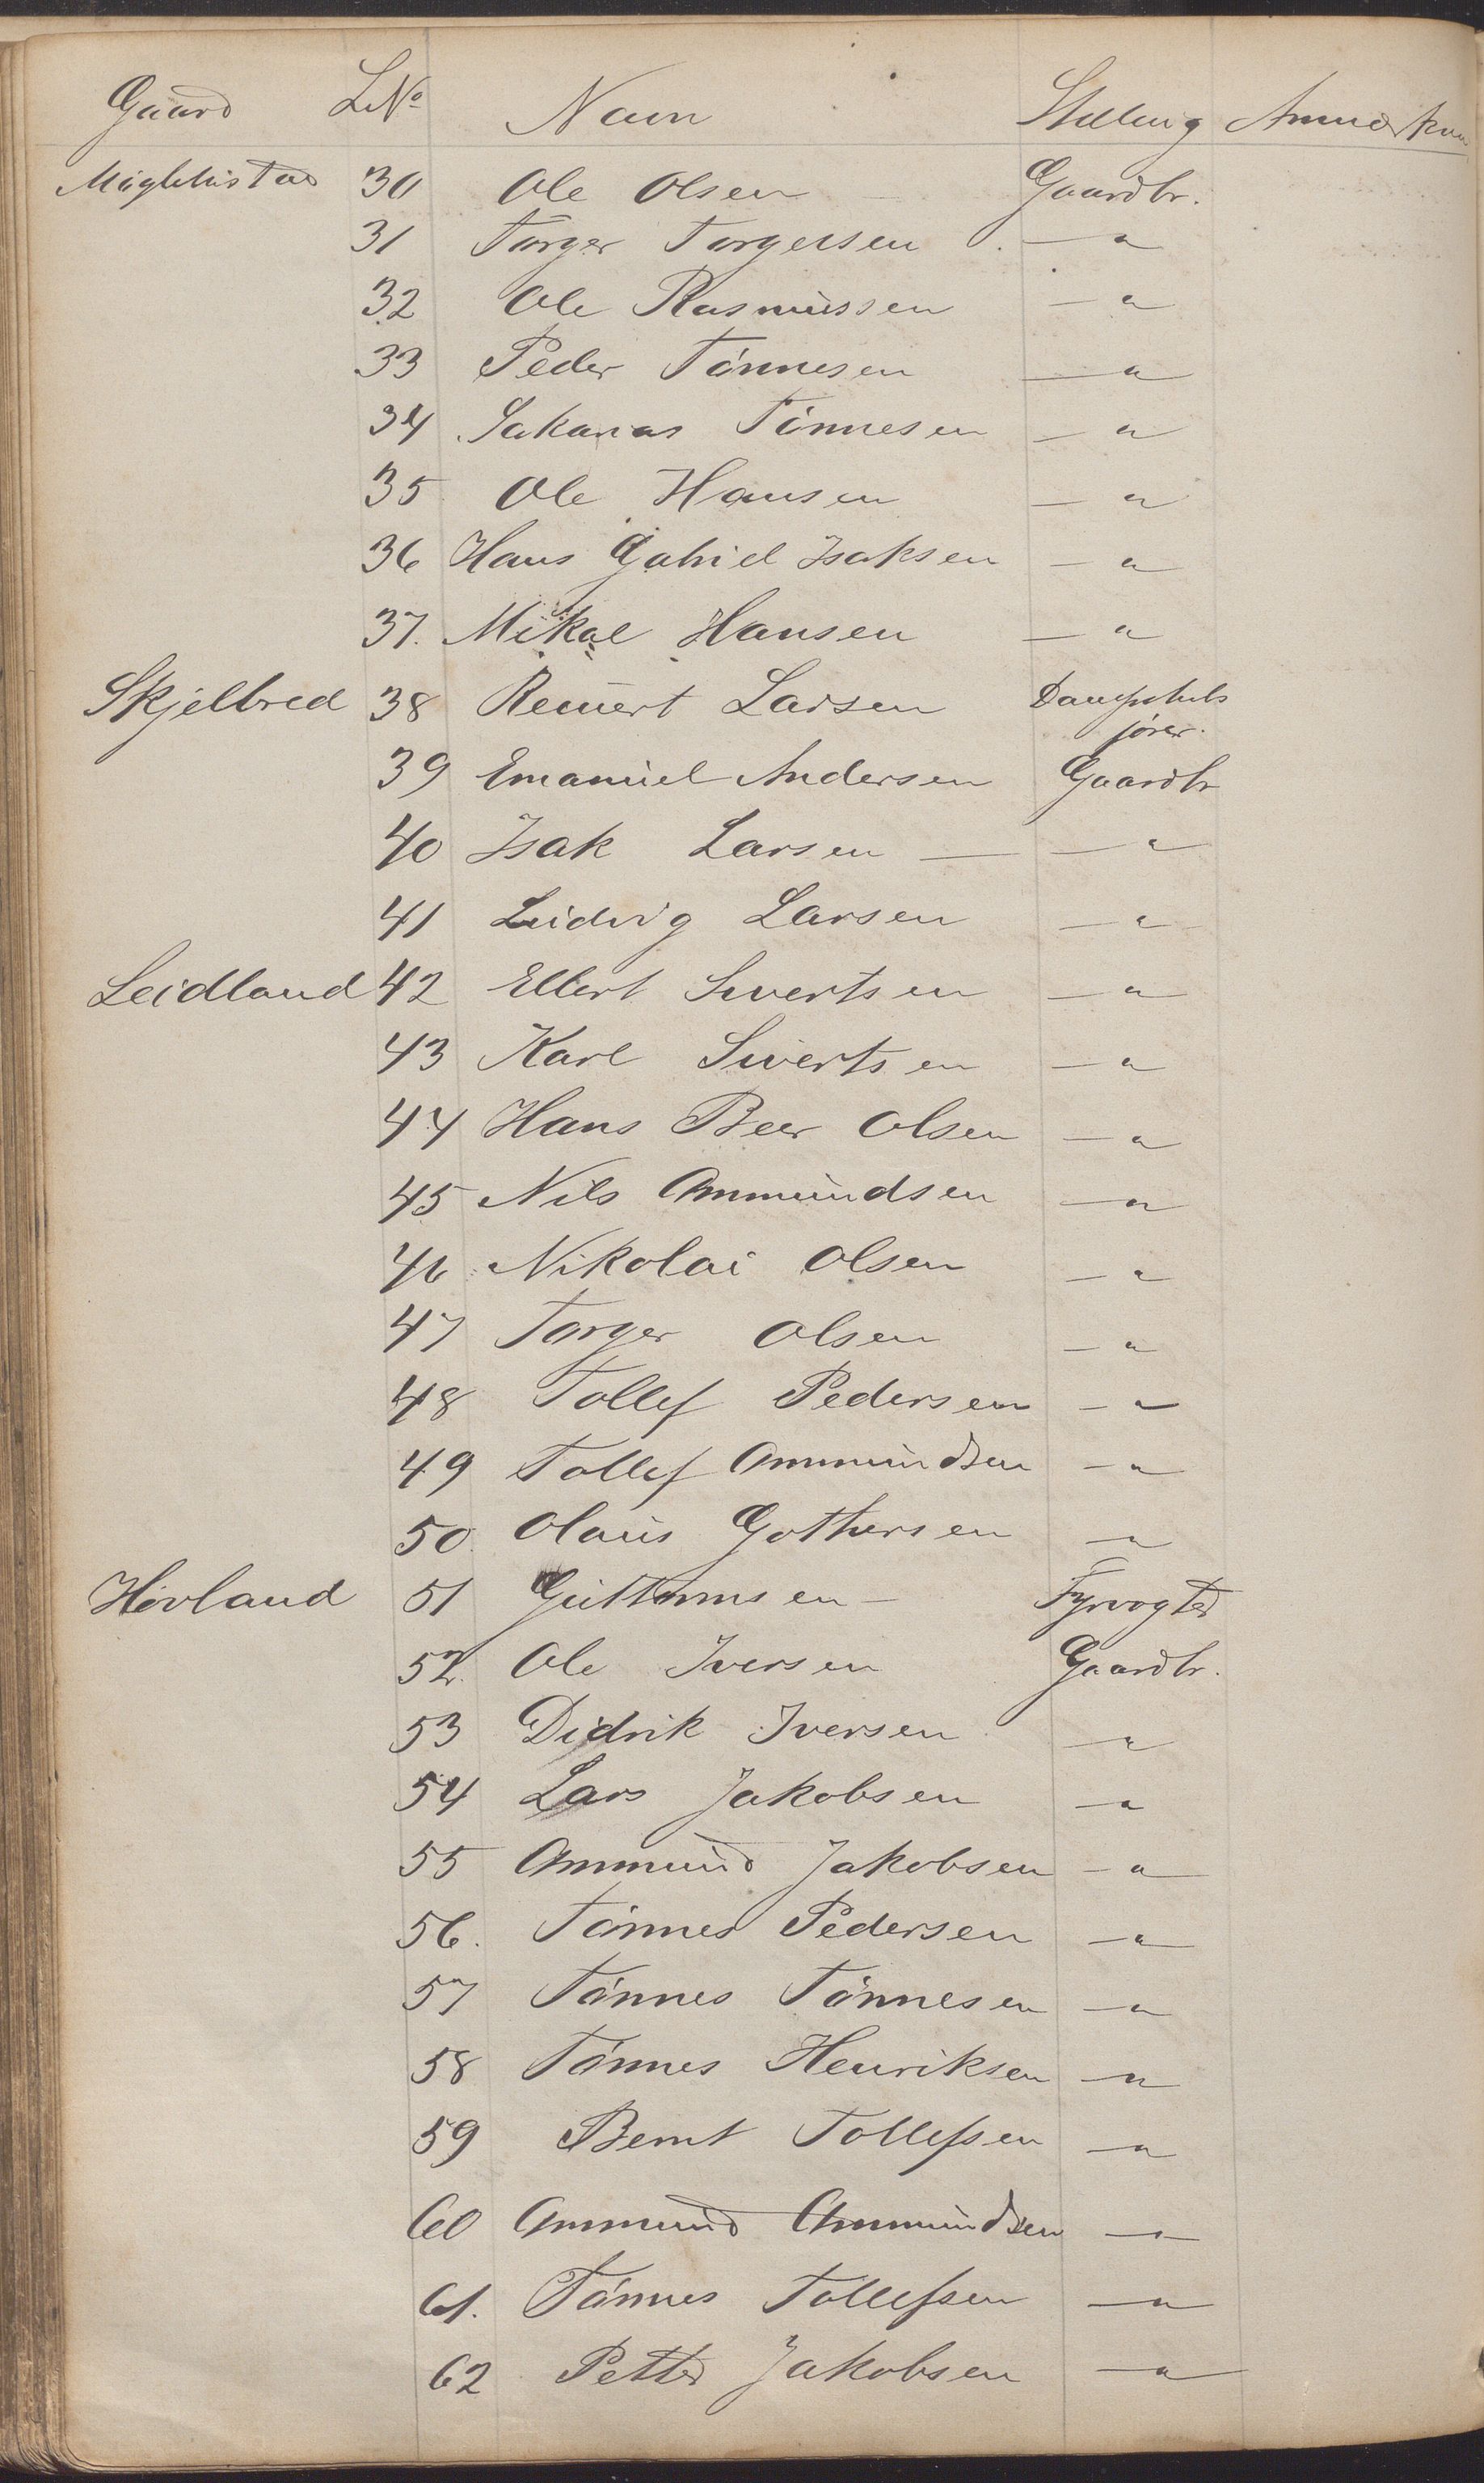 Gaard LNo Navn Stilling Anmærkn
Møglehistad 30 Ole Olsen Gaardbr.
31 Torger Torgersen — "
32 Ole Rasmussen — "
33 Peder Tönnesen — "
34 Sakarias Tönnesen — "
35 Ole Hansen — "
36 Hans Gabriel Isaksen — "
37. Mikal Hansen — "
Skjelbred 38 Reinert Larsen Dampskibs
förer.
39 Emanuel Andersen Gaardbr
40 Isak Larsen — — "
41 Ludvig Larsen — "
Leidland 42 Ellert Sivertsen — "
43 Karl Sivertsen — "
44 Hans Beer Olsen — "
45 Nils Ommundsen — "
46 Nikolai Olsen — "
47 Torger Olsen — "
48 Tollef Pedersen — "
49 Tollef Ommundsen — "
50. Olaus Gothersen — "
Hövland 51 Guttormsen — Fyrvogter
52. Ole Iversen Gaardbr.
53 Didrik Iversen — "
54 Lars Jakobsen — "
55 Ommund Jakobsen — "
56. Tönnes Pedersen — "
57 Tönnes Tönnesen — "
58 Tönnes Henriksen — "
59 Bernt Tollefsen — "
60 Ommund Ommundsen — "
61. Tönnes Tollefsen — "
62 Petter Jakobsen — "